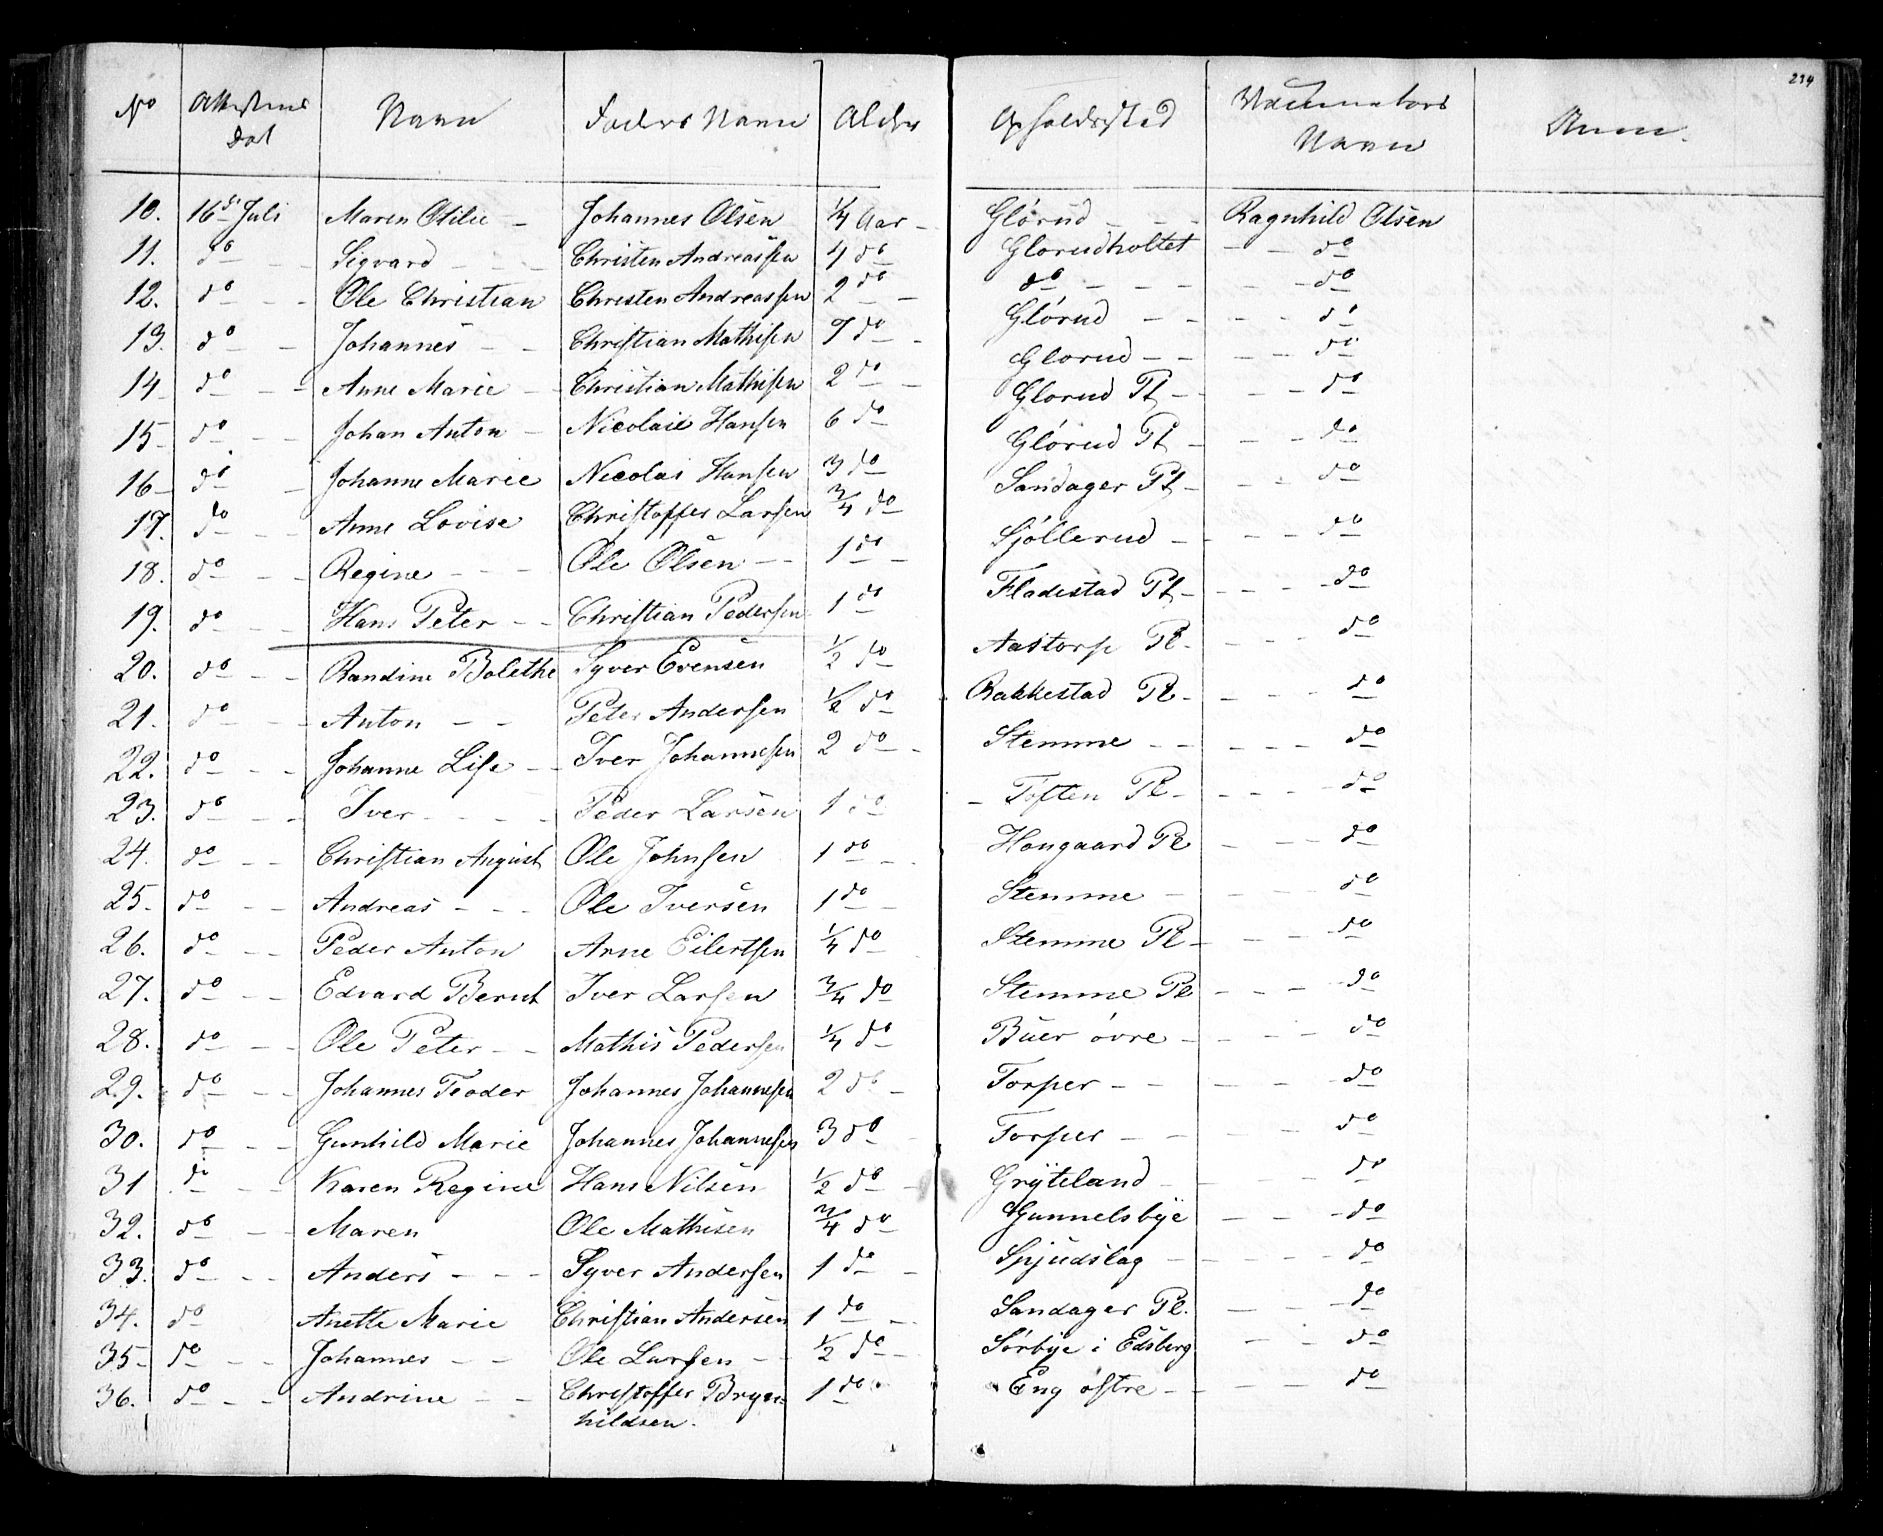 234
No | Attestens Dat | Navn | Faders Navn | Alder | Opholdssted | Vaccinateurs Navn | Anm.
10. | 16de Juli | Maren Otilie - | Johannes Olsen | 1/4 Aar - | Glörud - - - | Ragnhild Olsen
11. | do - - | Sigvard - - - | Christen Andreassen | 4 do | Glorudholtet - - | do
12. | do - - | Ole Christian | Christen Andreassen | 2 do - | do - - - - | do
13. | do - | Johannes - - | Christian Mathisen | 7 do - | Glörud - - - - | do
14 | do - - | Anne Marie - | Christian Mathisen | 2 do - | Glorud - - - - | do
15 | do - - | Johan Anton - | Nicolaie Hansen | 6 do | Glorud Pl - - - | do
16 | do - | Johanne Marie | Nicolai Hansen | 3 do | Glörud Pl - - - | do
17. | do - - | Anne Lovise | Christoffer Larsen | 3/4 do | Sandager Pl - - - | do
18. | do - - | Regine - - - | Ole Olsen - - | 1 do - | Sjöllerud - - - - | do
19. | do - - | Hans Peter - - | Christian Pedersen | 1 do | Fladestad Pl - - - - | do
20. | do - - | Randine Bolethe | Syver Evensen | 1/2 do | Aastorp Pl - - - | do
21. | do - - | Anton - - | Peter Andersen | 1/2 do | Rakkestad Pl - - - - | do
22. | do - - | Johanne Lise - - | Iver Johannesen | 2 do - | Stemme - - - - - | do
23. | do - - | Iver - - - - | Peder Larsen | 1 do | - Toften Pl - - - - | do
24. | do - - | Christian August | Ole Johnsen | 1 do - | Hougaard Pl - - - | do
25. | do - - | Andreas - - - | Ole Iversen | 1 do - | Stemme - - - - | do
26. | do - - | Peder Anton | Arne Eilertsen | 1/4 do | Stemme Pl - - - | do
27. | do - - | Edvard Bernt | Iver Larsen | 3/4 do | Stemme Pl - - - - | do
28. | do - - | Ole Peter - - | Mathis Pedersen | 1/4 do | Buer övre - - - - | do
29. | do - - | Johannes Teoder | Johannes Johannesen | 2 do - | Torper - - - - - | do
30. | do - - | Gunhild Marie | Johannes Johannesen | 3 do | Torper - - - - | do
31 | do - - | Karen Regine | Hans Nilsen | 1/2 do - | Gryteland - - - | do
32. | do - - | Maren | Ole Mathisen | 3/4 do | Gunnelsbye - - - | do
33. | do - - | Anders - - - | Syver Andersen | 1 do - | Spjudslag - - - - | do
34. | do | Anette Marie | Christian Andersen | 1 do - | Sandager Pl. - - - | do
35 | do - - | Johannes - - | Ole Larsen - - | 1/2 do - | Sörbye i Edsberg - - | do
36. | do - - | Andrine - - | Christoffer Bryn-
hildsen. | 1 do | Eng östre - - - - | do